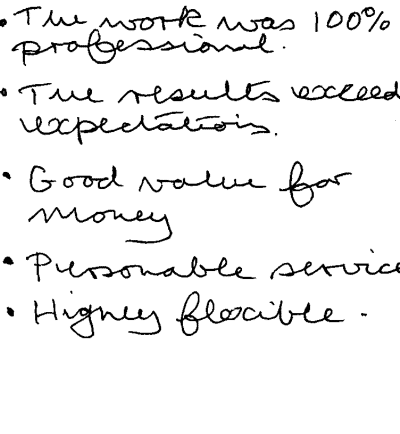 • The work was 100%
professional.
• The results exceed
expectations.
• Good value for
money
• Personable service
• Highly flexible.